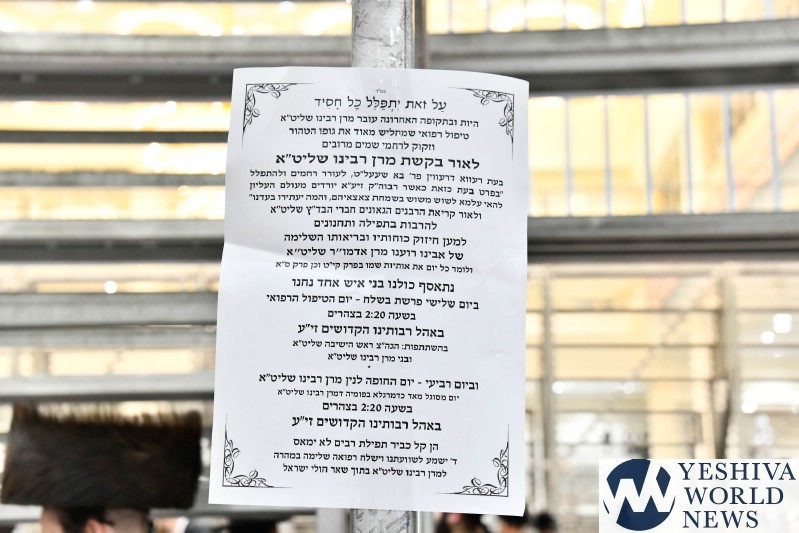 בס"ד
עַל זֹאת יִתְפַּלֵּל כָּל חָסִיד
היות ובתקופה האחרונה עובר מרן רבינו שליט"א
טיפול רפואי שמחליש מאוד את גופו הטהור
וזקוק לרחמי שמים מרובים
לאור בקשת מרן רבינו שליט"א
בעת רעווא דרעווין פר' בא שעעל"ט, לעורר רחמים ולהתפלל
"בפרט בעת כזאת כאשר רבוה"ק זיע"א יורדים מעולם העליון
להאי עלמא לשוש משוש בשמחת צאצאיהם, והמה יעתירו בעדנו"
ולאור קריאת הרבנים הגאונים חברי הבד"ץ שליט"א
להרבות בתפילה ותחנונים
למען חיזוק כוחותיו ובריאותו השלימה
של אבינו רוענו מרן אדמו"ר שליט"א
ולומר כל יום את אותיות שמו בפרק קי"ט וכן פרק ס"א
נתאסף כולנו בני איש אחד נחנו
ביום שלישי פרשת בשלח - יום הטיפול הרפואי
בשעה 2:20 בצהרים
באהל רבותינו הקדושים זי"ע
בהשתתפות: הגה"צ ראש הישיבה שליט"א
ובני מרן רבינו שליט"א
וביום רביעי - יום החופה לנין מרן רבינו שליט"א
יום מסוגל מאד כדמרגלא בפומיה דמרן רבינו שליט"א
בשעה 2:20 בצהרים
באהל רבותינו הקדושים זי"ע
הן קל כביר תפילת רבים לא ימאס
ד' ישמע לשוועתנו וישלח רפואה שלימה במהרה
למרן רבינו שליט"א בתוך שאר חולי ישראל
YESHIVA
WORLD
NEWS